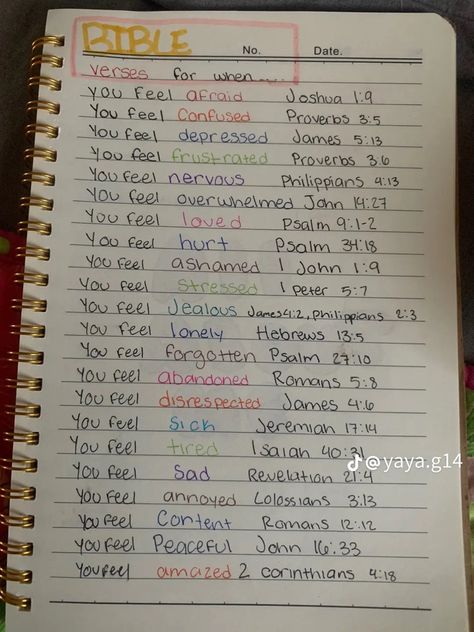 BIBLE No. Date.
verses for when.....
you feel afraid Joshua 1:9
You feel confused Proverbs 3:5
You feel depressed James 5:13
You feel frustrated Proverbs 3:6
You feel nervous Philippians 4:13
You feel overwhelmed John 14:27
You feel loved Psalm 9:1-2
You feel hurt Psalm 34:18
You feel ashamed 1 John 1:9
You feel stressed 1 Peter 5:7
You feel Jealous James 4:2, Philippians 2:3
You feel lonely Hebrews 13:5
You feel forgotten Psalm 27:10
You feel abandoned Romans 5:8
You feel disrespected James 4:6
You feel sick Jeremiah 17:14
You feel tired Isaiah 40:31
You feel sad Revelation 21:4
You feel annoyed Colossians 3:13
You feel Content Romans 12:12
You feel Peaceful John 16:33
You feel amazed 2 corinthians 4:18
@yaya.g14